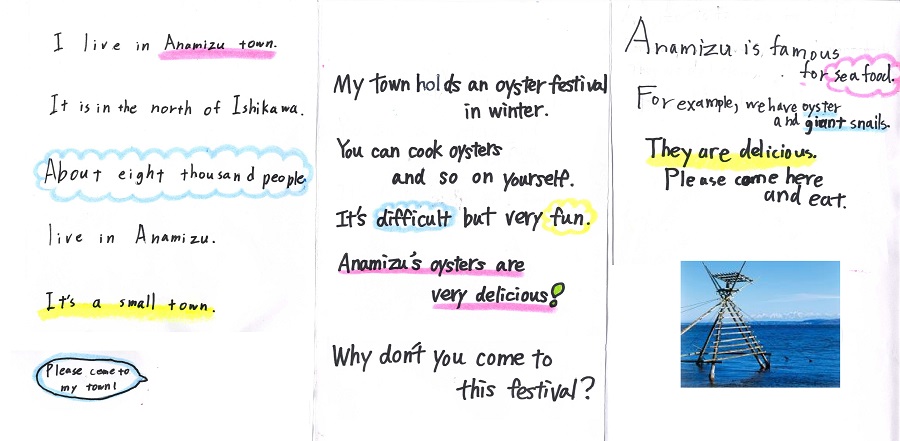 I live in Anamizu town.
It is in the north of Ishikawa.
About eight thousand people
live in Anamizu.
It's a small town.
Please come to
my town!
My town holds an oyster festival
in winter.
You can cook oysters
and so on yourself.
It's difficult but very fun.
Anamizu's oysters are
very delicious!
Why don't you come to
this festival?
Anamizu is famous
for sea food.
For example, we have oyster
and giant snails.
They are delicious.
Please come here
and eat.